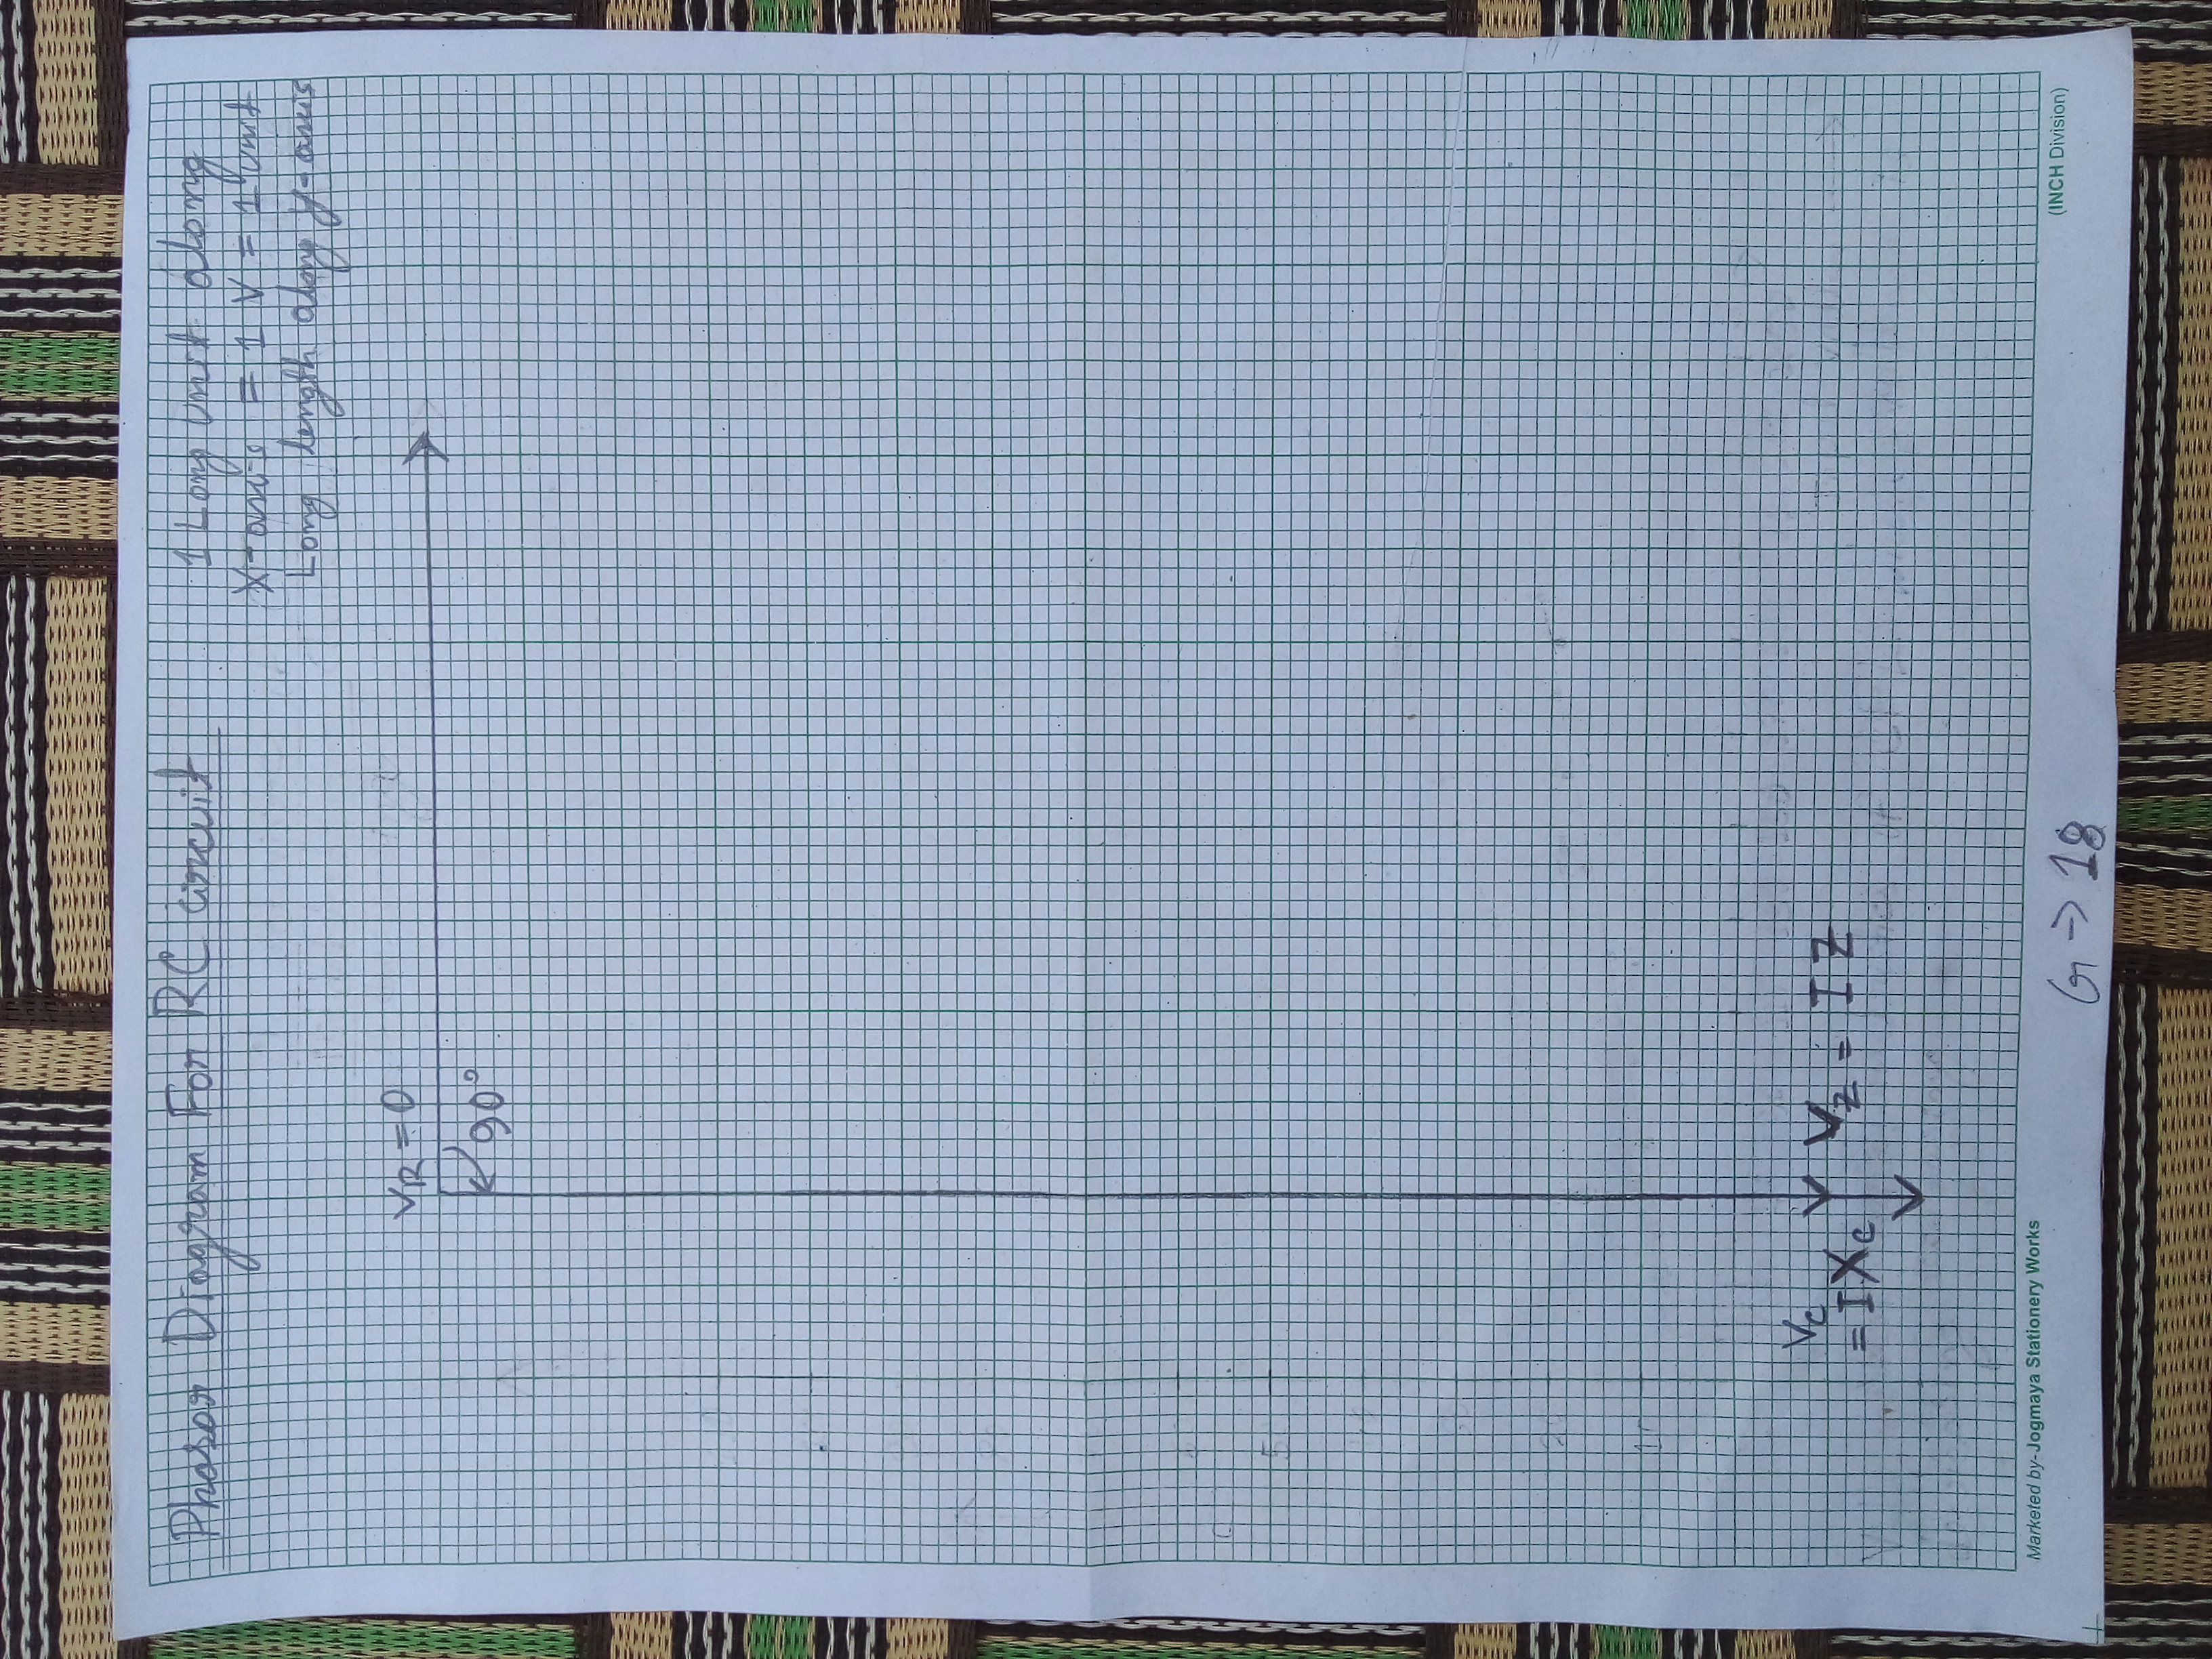 Phasor Diagram For RC circuit
1 Long Unit along
X-axis = 1 V = 1 unit
Long length along y-axis
VR = 0
90°
5
10
Vc
= IXc
Vz = IZ
Marketed by-Jogmaya Stationery Works
(INCH Division)
G → 18